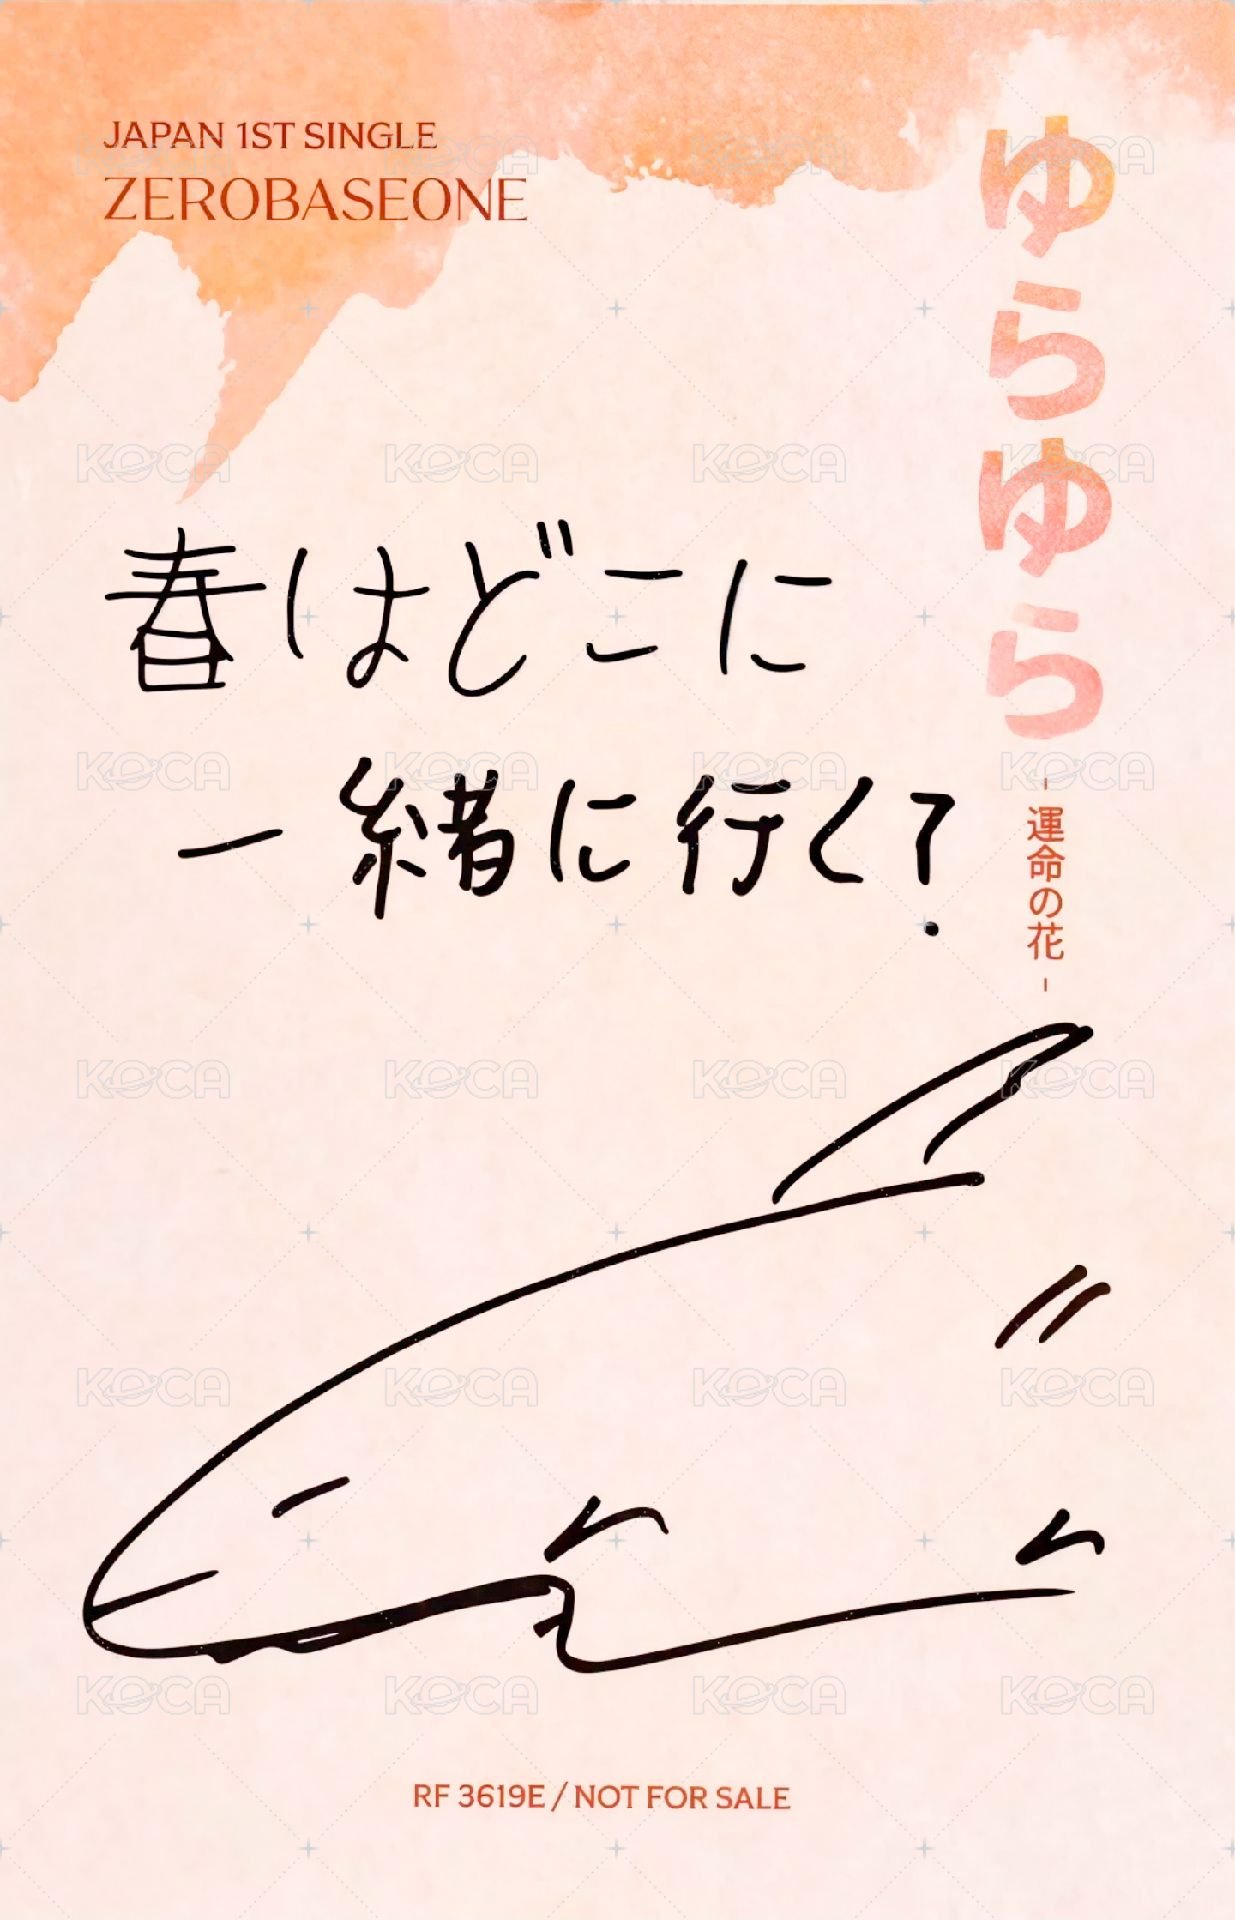 JAPAN 1ST SINGLE
ZEROBASEONE
ゆらゆら
- 運命の花 -
春はどこに
一緒に行く?
RF 3619E / NOT FOR SALE
KOCA